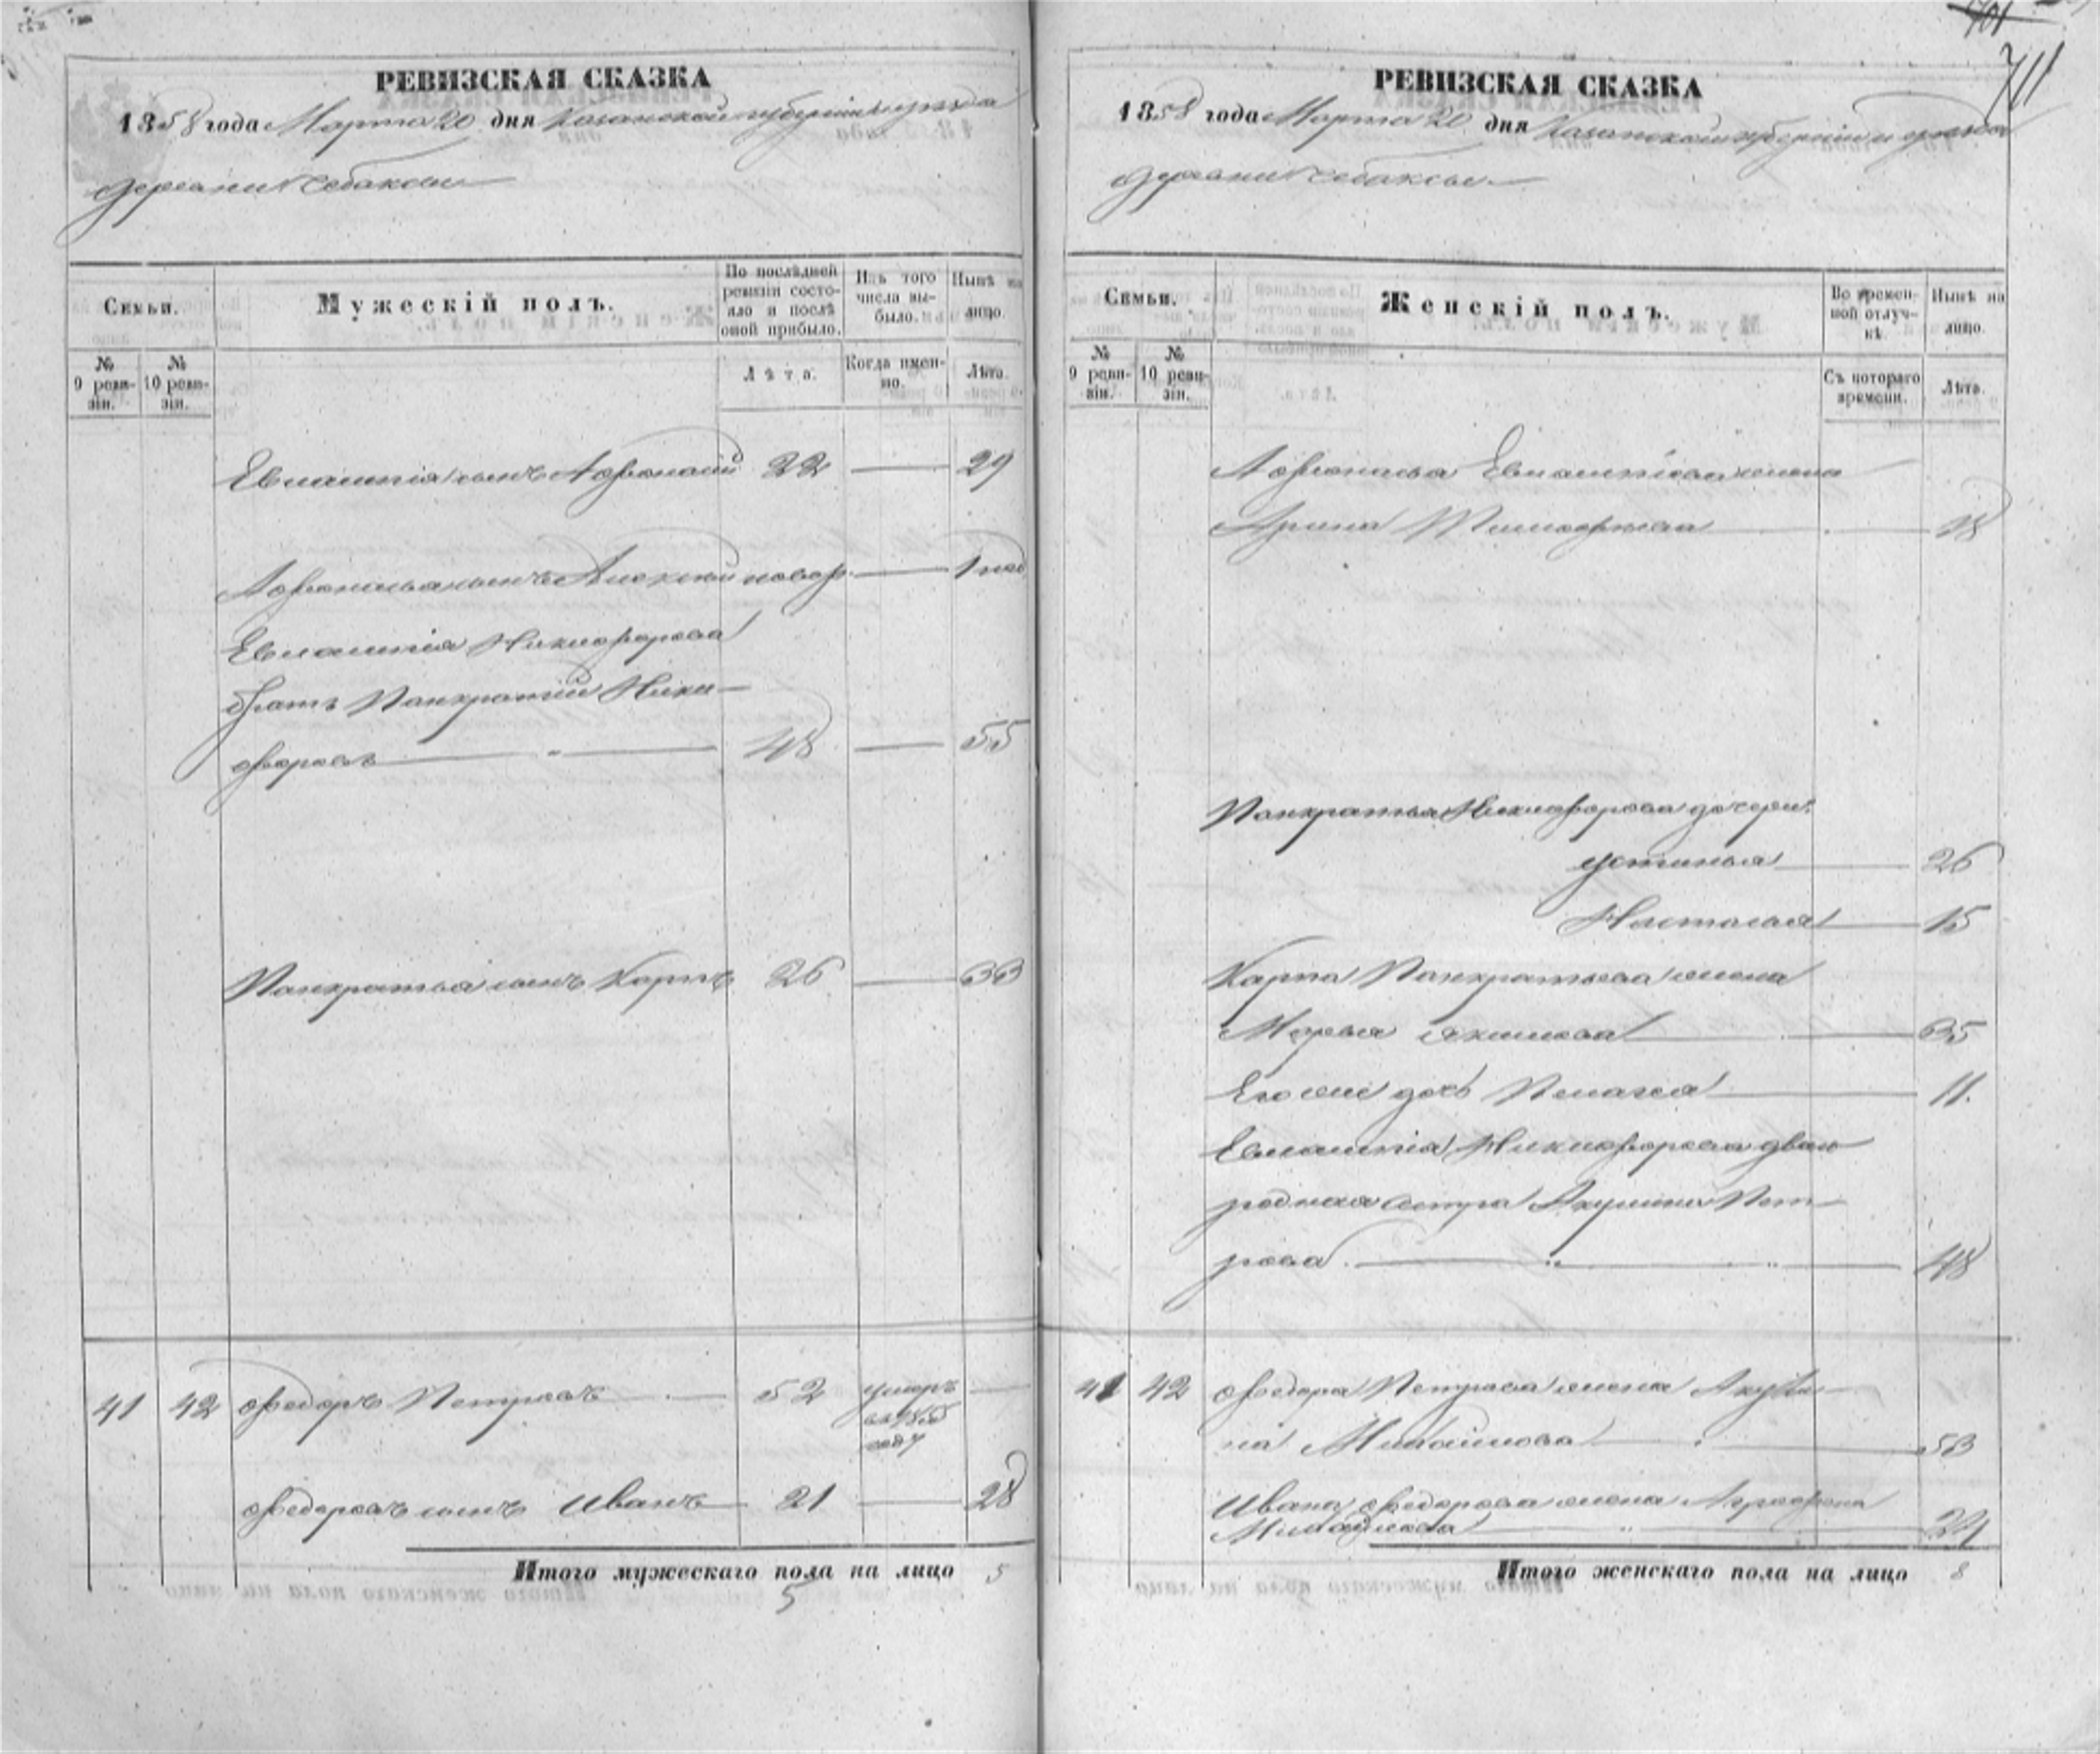 701
711
РЕВИЗСКАЯ СКАЗКА
1858 года Марта 20 дня Казанской губерніи и уезда
деревни Чебаксы
Семьи.
Мужескій полъ.
По послѣдней ревизіи состояло и послѣ оной прибыло.
Изъ того числа выбыло.
Нынѣ на лицо.
№ 9 ревизіи.
№ 10 ревизіи.
Лѣта.
Когда именно.
Лѣта.
Евлампія сынъ Афонасій 22 29
Афонасья сынъ Алексей новор. 1 год
Евлампія Никифорова
братъ Панкратій Ники-
форовъ 48 55
Панкратья сынъ Карпъ 26 33
41 42 Федоръ Петровъ 52 умеръ
году
Федоровъ сынъ Иванъ 21 28
Итого мужескаго пола на лицо 5
5
РЕВИЗСКАЯ СКАЗКА
1858 года Марта 20 дня Казанской губерніи и уезда
деревни Чебаксы
Семьи.
Женскій полъ.
Во временной отлучкѣ.
Нынѣ на лицо.
№ 9 ревизіи.
№ 10 ревизіи.
Съ котораго времени.
Лѣта.
Афонасья Евлампіева жена
Арина Тимофеева 28
Панкратья Никифорова дочери:
Устинья 26
Настасья 15
Карпа Панкратьева жена
Марья Якимова 35
Его же дочь Пелагея 11.
Евлампія Никифорова двою
родная сестра Акулина Пет-
рова 48
41 42 Федора Петрова жена Акули-
на Михайлова 53
Ивана Федорова жена Аграфена
Михайлова 24
Итого женскаго пола на лицо 8